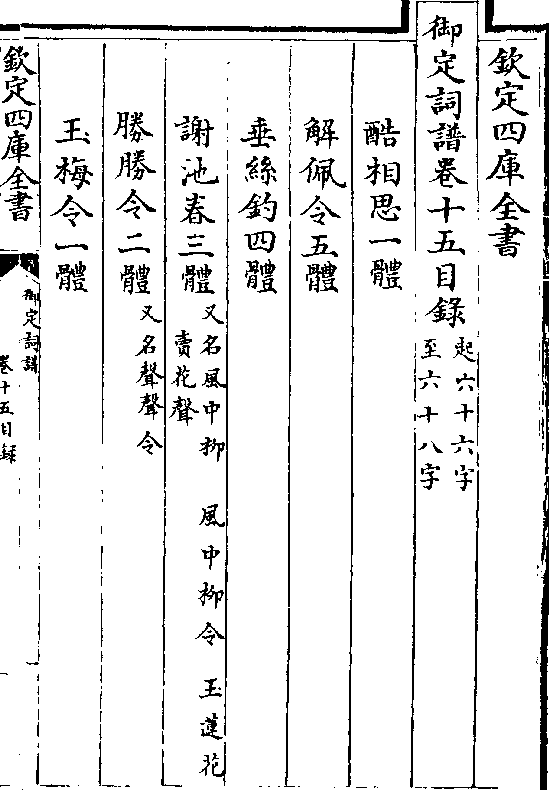 欽定四庫全書
御定詞譜卷十五目錄 起六十六字
至六十八字
酷相思一體
解佩令五體
垂絲釣四體
謝池春三體 又名風中柳 風中柳令 玉蓮花
賣花聲
勝勝令二體 又名聲聲令
玉梅令一體
欽定四庫全書
御定詞譜
卷十五目録